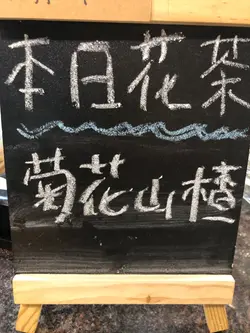 本日花茶
菊花山楂